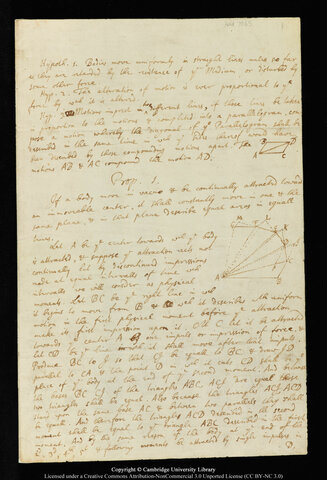 Hypoth. 1. Bodies move uniformly in straight lines unless so far
as they are retarded by the resistence of ye Medium or disturbed by
some other force.
Hyp. 2. The alteration of motion is ever proportional to ye
force by wch it is altered.
Hyp. 3. Motions imprest in two different lines, if those lines be taken
in proportion to the motions & completed into a parallelogram, com
pose a motion whereby the diagonal of ye Parallelogram shall be
described in the same time in wch ye sides thereof would have
been described by those compounding motions apart. The
motions AB & AC compound the motion AD.
Prop. 1.
If a body move in vacuo & be continually attracted toward
an immoveable center, it shall constantly move in one & the
same plane, & in that plane describe equal areas in equall
times.
Let A be ye center towards wch ye body
is attracted, & suppose ye attraction acts not
continually but by discontinued impressions
made at equal intervalls of time wch
intervalls we will consider as physical
moments. Let BC be ye right line in wch
it begins to move from B & wch it describes with uniform
motion in the first physical moment before ye attraction
make its first impression upon it. At C let it be attracted
towards ye center A by one impuls or impression of force, &
let CD be ye line in wch it shall move after that impuls.
Produce BC to I so that CI be equall to BC & draw ID
parallel to CA & the point D in wch it cuts CD shall be ye
place of ye body at the end of ye second moment. And because
the bases BC CI of the triangles ABC, ACI are equal those
two triangles shall be equal. Also because the triangles ACI, ACD
stand upon the same base AC & between two parallels they shall
be equall. And therefore the triangle ACD described in the second
moment shall be equal to ye triangle ABC described in the first
moment. And by the same reason if the body at ye end of the
2d, 3d, 4th, 5t & following moments be attracted by single impulses in
Copyright © Cambridge University Library
Licensed under a Creative Commons Attribution-NonCommercial 3.0 Unported License (CC BY-NC 3.0)